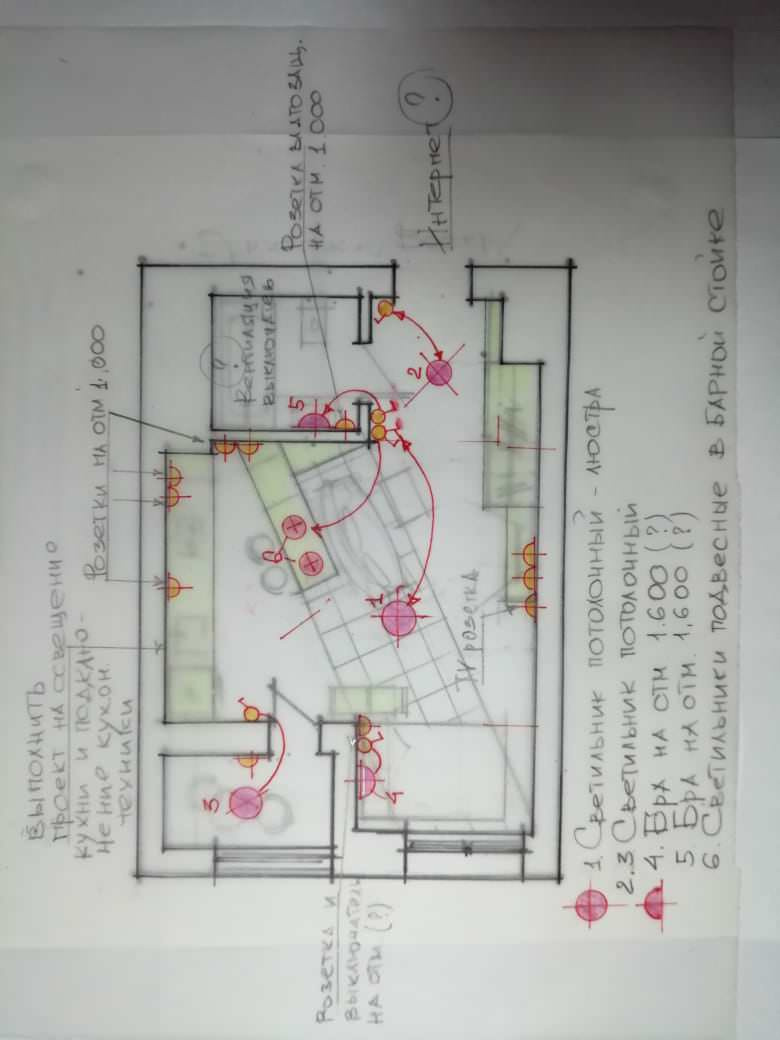 Выполнить
проект на освещение
кухни и подклю-
чение кухон.
техники
Розетки на отм 1,000
Розетка влагозащ.
на отм. 1.000
Интернет ?
?
Вентиляция
выключатель
5
2
6
1
3
4
TV розетка
Розетка и
выключатель
на отм (?)
1. Светильник потолочный - люстра
2.3 Светильник потолочный
4. Бра на отм 1.600 (?)
5 Бра на отм. 1,600 (?)
6. Светильники подвесные в барной стойке